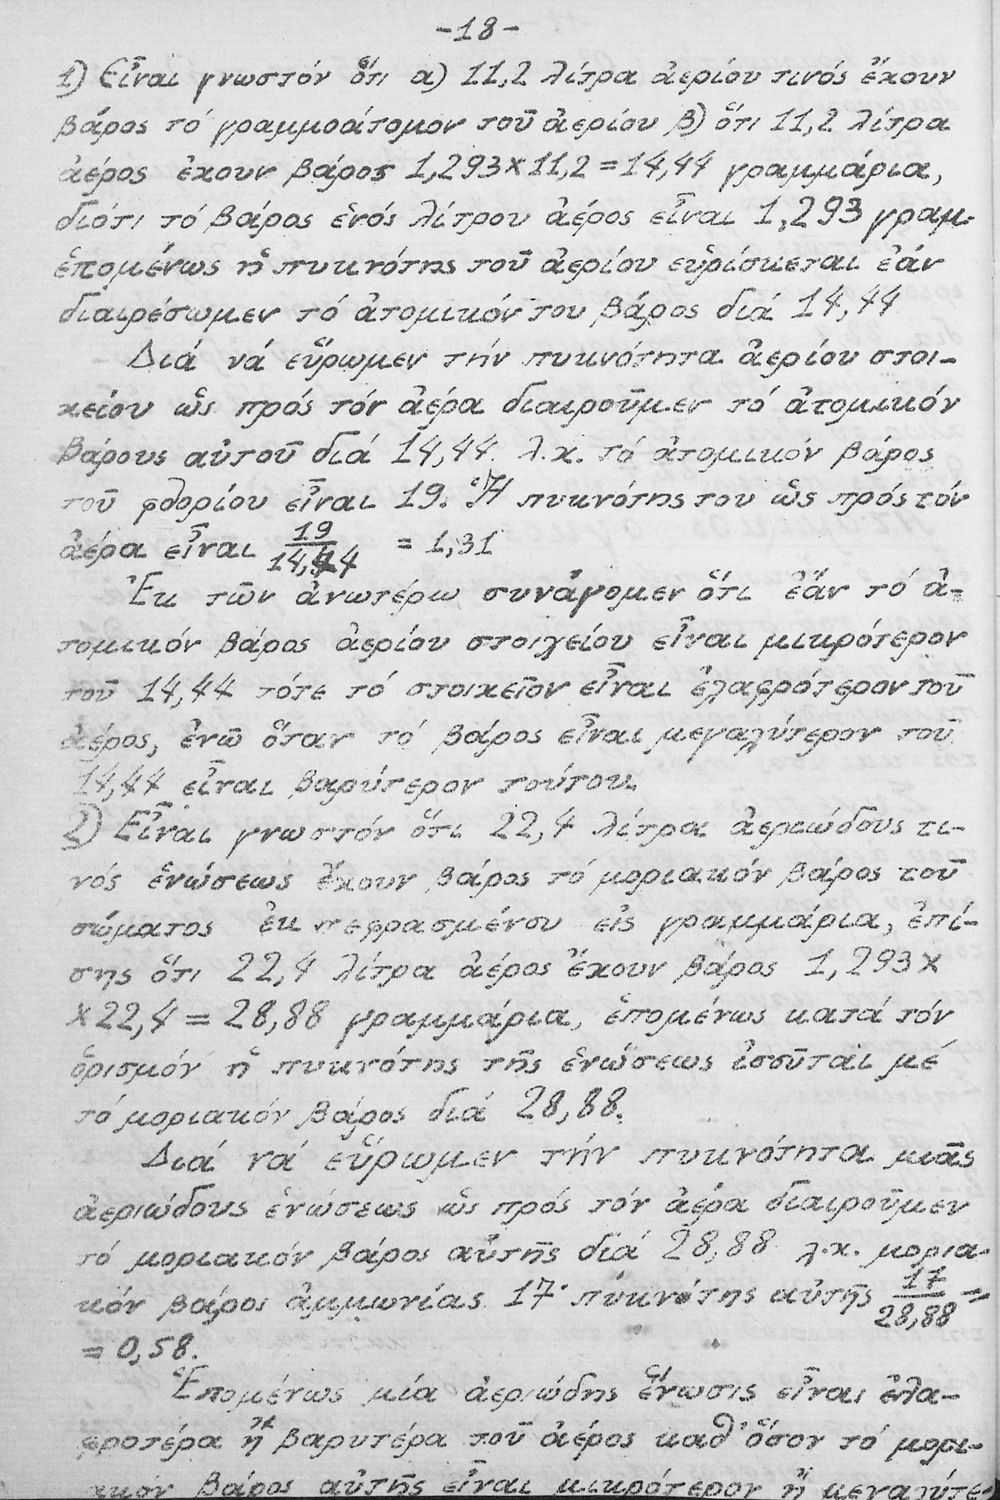 -18-
1) Εἶναι γνωστόν ὅτι α) 11,2 λίτρα ἀερίου τινός ἔχουν
βάρος τό γραμμοάτομον τοῦ ἀερίου β) ὅτι 11,2 λίτρα
ἀέρος ἐχουν βάρος 1,293×11,2=14,44 γραμμάρια,
διότι τό βάρος ἑνός λίτρου ἀέρος εἶναι 1,293 γραμ.
ἑπομένως ἡ πυκνότης τοῦ ἀερίου εὑρίσκεται ἐάν
διαιρέσωμεν τό ἀτομικόν του βάρος διά 14,44
Διά νά εὕρωμεν τήν πυκνότητα ἀερίου στοι-
χείου ὡς πρός τόν ἀέρα διαιροῦμεν τό ἀτομικόν
βάρους αὐτοῦ διά 14,44. λ.χ. τό ἀτομικόν βάρος
τοῦ φθορίου εἶναι 19. Ἡ πυκνότης του ὡς πρός τόν
ἀέρα εἶναι 19/14,44 = 1,31
Ἐκ τῶν ἀνωτέρω συνάγομεν ὅτι ἐάν τό ἀ-
τομικόν βάρος ἀερίου στοιχείου εἶναι μικρότερον
τοῦ 14,44 τότε τό στοιχεῖον εἶναι ἐλαφρότερον τοῦ
ἀέρος, ἐνῶ ὅταν τό βάρος εἶναι μεγαλύτερον τοῦ
14,44 εἶναι βαρύτερον τούτου.
2) Εἶναι γνωστόν ὅτι 22,4 λίτρα ἀεριώδους τι-
νός ἑνώσεως ἔχουν βάρος τό μοριακόν βάρος τοῦ
σώματος ἐκπεφρασμένου εἰς γραμμάρια, ἐπί-
σης ὅτι 22,4 λίτρα ἀέρος ἔχουν βάρος 1,293×
×22,4=28,88 γραμμάρια, ἑπομένως κατά τόν
ὁρισμόν ἡ πυκνότης τῆς ἑνώσεως ἰσοῦται μέ
τό μοριακόν βάρος διά 28,88.
Διά νά εὕρωμεν τήν πυκνότητα μιᾶς
ἀεριώδους ἑνώσεως ὡς πρός τόν ἀέρα διαιροῦμεν
τό μοριακόν βάρος αὐτῆς διά 28,88 λ.χ. μορια-
κόν βάρος ἀμμωνίας 17· πυκνότης αὐτῆς 17/28,88 =
= 0,58.
Ἑπομένως μία ἀεριώδης ἕνωσις εἶναι ἐλα-
φροτέρα ἤ βαρυτέρα τοῦ ἀέρος καθ' ὅσον τό μορι-
ακόν βάρος αὐτῆς εἶναι μικρότερον ἤ μεγαλύτε-